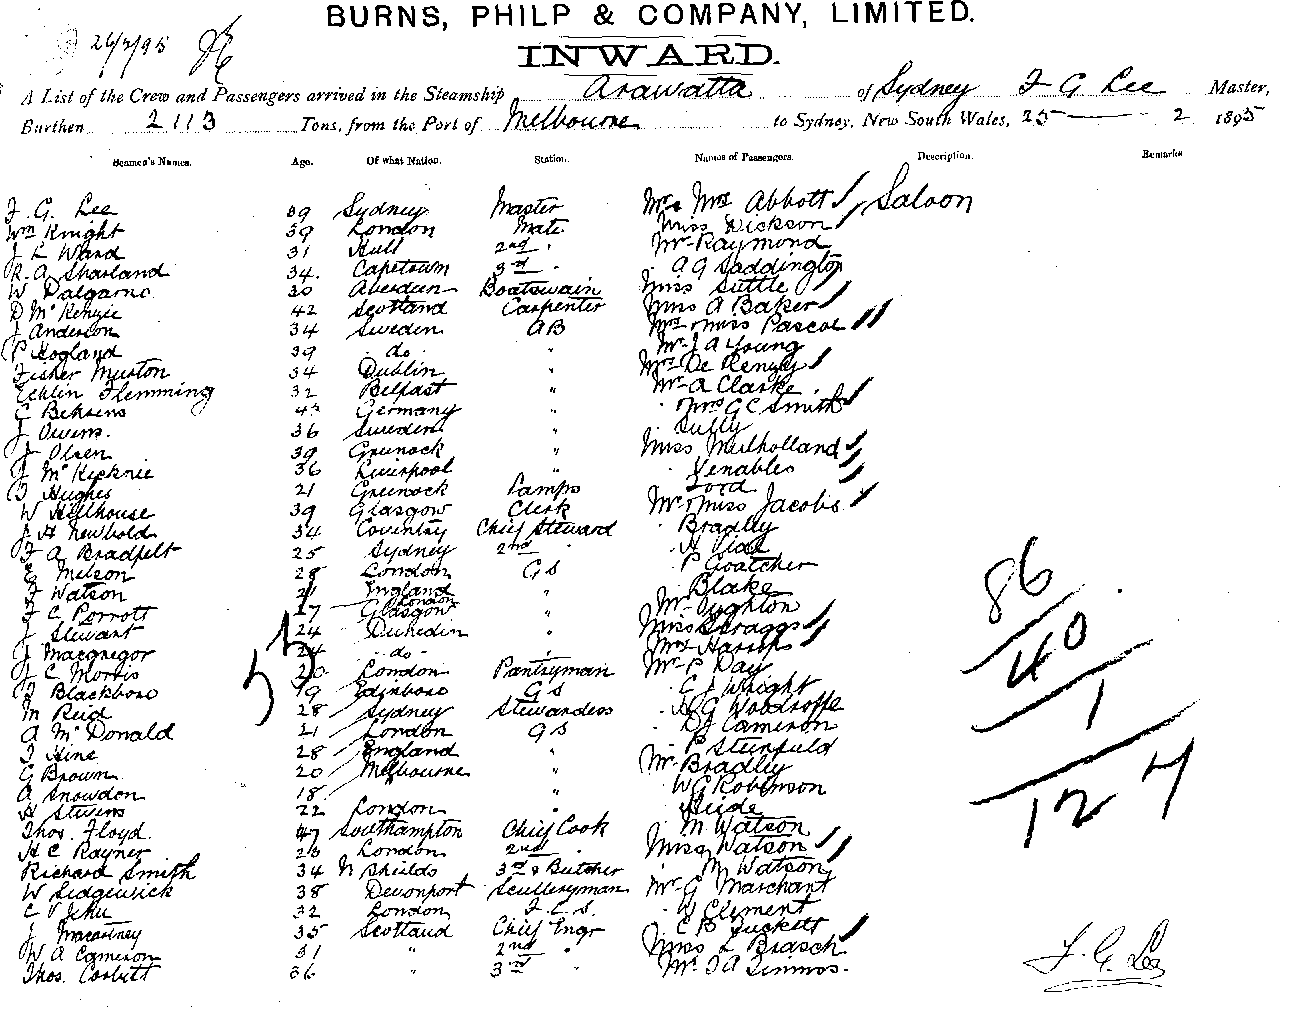 BURNS, PHILP & COMPANY, LIMITED.
26/2/95
INWARD.
A List of the Crew and Passengers arrived in the Steamship Arawatta of Sydney F G Lee Master,
Burthen 2113 Tons, from the Port of Melbourne to Sydney, New South Wales, 25 2 1895
Seamen's Names. Age. Of what Nation. Station. Names of Passengers. Description. Remarks
F. G. Lee 39 Sydney Master Mr & Mrs Abbott Saloon
Wm Knight 39 London Mate Miss Dickson
J L Ward 31 Hull 2nd " Mr Raymond
R. A Sharland 34. Capetown 3rd " A G Saddington
W Dalgarno 30 Aberdeen Boatswain Miss Suttle
D McKenzie 42 Scotland Carpenter Miss A Baker
J Anderson 34 Sweden AB Mrs & Miss Pascoe
P Hogland 39 do " Mr J A Young
Fisher Muston 34 Dublin " Mrs De Renzy
Echlin Flemming 32 Belfast " Mr A Clarke
C Behrens 43 Germany " Mrs G C Smith
J Owens. 36 Sweden " Sully
J Olsen 39 Greenock " Miss Mulholland
J McKechnie 36 Liverpool " Venables
J Hughes 21 Greenock Lamps Lord
W Hillhouse 39 Glasgow Clerk Mr & Miss Jacobs
J H Newbold 34 Coventry Chief Steward Bradley
F A Bradfelt 25 Sydney 2nd " H
Melson 28 London GS P Goatcher
F Watson 21 England " Blake
F C Porrott 27 Glasgow London " Mr Tyghton
J Stewart 24 Dunedin " Miss Scraggs
J Macgregor 24 do " Mrs Harris
J C Morris 20 London Pantryman Mr P Day
J Blackboro 19 Edinboro G S E J Wright
M Reid 28 Sydney Stewardess H G Woodroffe
A McDonald 21 London G S D J Cameron
J Hine 28 England " P Steinfeld
G Brown 20 Melbourne " Mr Bradley
A Snowdon 18 " W G Robinson
H Stevens 22 London " Hide
Thos. Floyd. 47 Southampton Chief Cook M Watson
H C Rayner 26 London 2nd " Miss Watson
Richard Smith 34 N Shields 3rd & Butcher M Watson
W Sidgewick 38 Devonport Sculleryman Mr G Marchant
C V Jehu 32 London F. C. S. W Clement
J Macartney 35 Scotland Chief Engr C B Puckett
W A Cameron 31 " 2nd " Miss L Brasch
Thos. Corbett 36 " 3rd " Mr J A Simmos.
53
86
40
1
124
F. G. Lee